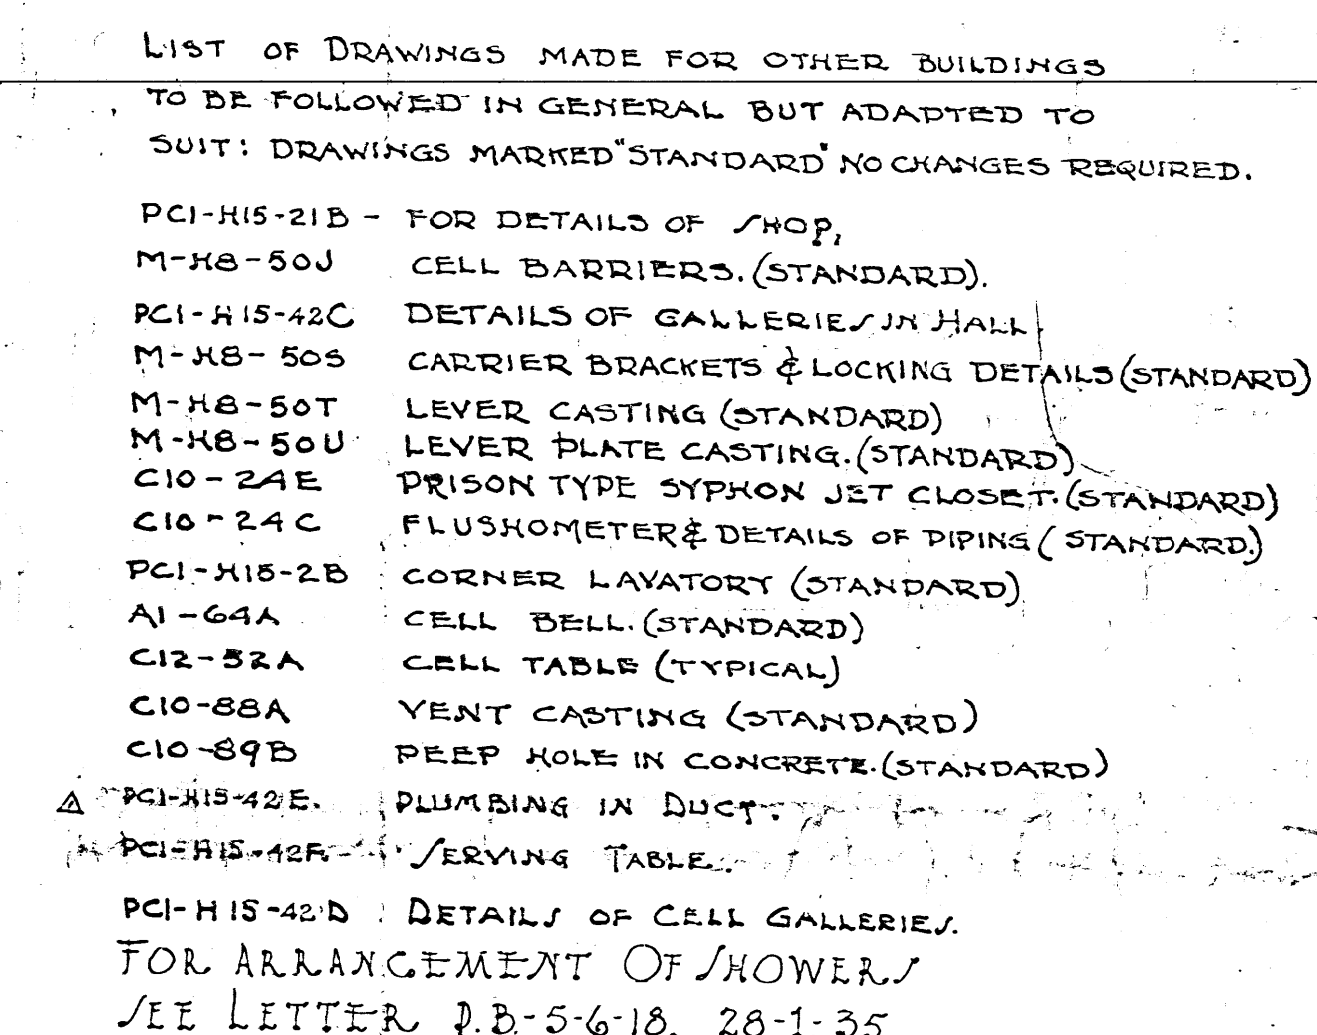 LIST OF DRAWINGS MADE FOR OTHER BUILDINGS
TO BE FOLLOWED IN GENERAL BUT ADAPTED TO
SUIT: DRAWINGS MARKED "STANDARD" NO CHANGES REQUIRED.
PC1-H15-21B - FOR DETAILS OF SHOP,
M-H8-50J CELL BARRIERS. (STANDARD).
PC1-H15-42C DETAILS OF GALLERIES IN HALL
M-H8-50S CARRIER BRACKETS & LOCKING DETAILS (STANDARD)
M-H8-50T LEVER CASTING (STANDARD)
M-H8-50U LEVER PLATE CASTING. (STANDARD)
C10-24E PRISON TYPE SYPHON JET CLOSET. (STANDARD)
C10-24C FLUSHOMETER & DETAILS OF PIPING (STANDARD.)
PC1-H15-2B CORNER LAVATORY (STANDARD)
A1-64A CELL BELL. (STANDARD)
C12-52A CELL TABLE (TYPICAL)
C10-88A VENT CASTING (STANDARD)
C10-89B PEEP HOLE IN CONCRETE. (STANDARD)
PC1-H15-42E. PLUMBING IN DUCT.
PC1-H15-42F SERVING TABLE.
PC1-H15-42D DETAILS OF CELL GALLERIES.
FOR ARRANGEMENT OF SHOWERS
SEE LETTER P.B.-5-6-18. 28-1-35